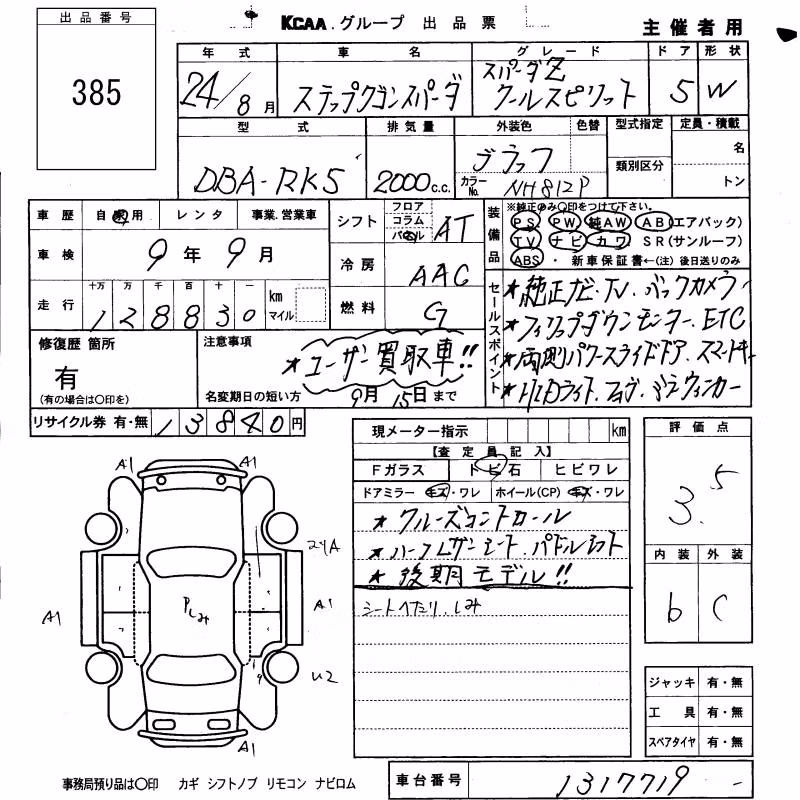 出品番号
385
KCAA.グループ 出品票
主催者用
年式 車名 グレード ドア 形状
24/8月 ステップワゴンスパーダ スパーダZ クールスピリット 5 W
型式 排気量 外装色 色替 型式指定 定員・積載
DBA-RK5 2000c.c. ブラック
カラーNo. NH812P
類別区分
名
トン
車歴 自家用 レンタ 事業.営業車
車検 9年9月
走行 十万 万 千 百 十 一
128830 km マイル
シフト フロア コラム パネル AT
冷房 AAC
燃料 G
装備品 ※純正のみ○印をつけて下さい。
PS PW 純AW AB(エアバック)
TV ナビ カワ SR(サンルーフ)
ABS ・ 新車保証書←(注)後日送りのみ
セールスポイント
★純正ナビ.TV.バックカメラ
★フィリップダウンモニター.ETC
★両側パワースライドドア.スマートキー
★HIDライト.フォグ.ドラウィンカー
修復歴 箇所
有
(有の場合は○印を)
注意事項
★ユーザー買取車!!
名変期日の短い方 9月15日まで
リサイクル券 有・無 13840円
現メーター指示 km
【査定員記入】
Fガラス トビ石 ヒビワレ
ドアミラー キズ・ワレ ホイール(CP) キズ・ワレ
★クルーズコントロール
★ハーフレザーシート.パドルシフト
★後期モデル!!
シートヘタリ.しみ
評価点
3.5
内装 外装
b C
A1 A1
A1
Pしみ
A1
U2
A1
ジャッキ 有・無
工具 有・無
スペアタイヤ 有・無
事務局預り品は○印 カギ シフトノブ リモコン ナビロム
車台番号 1317719